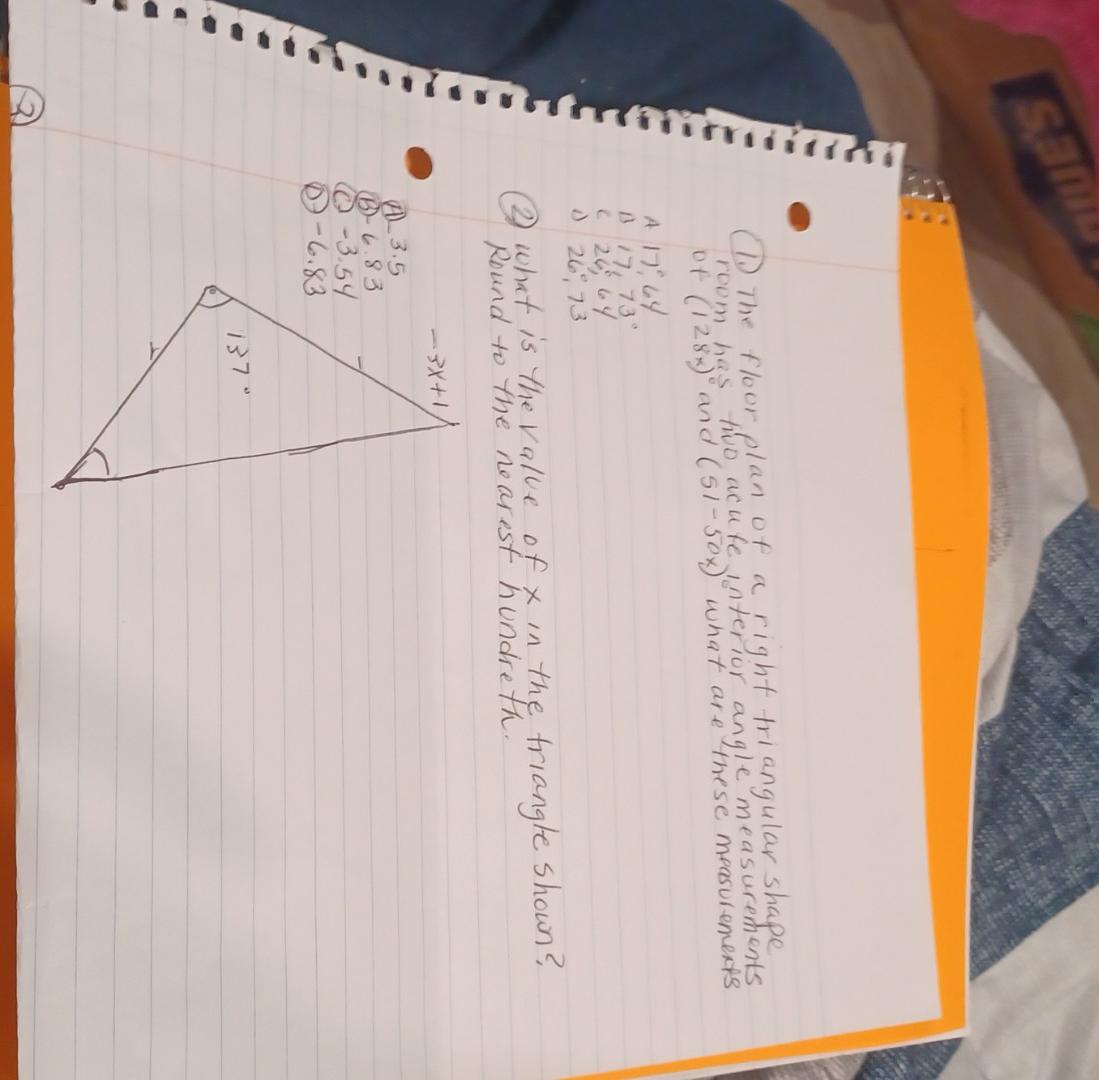 ① The floor plan of a right triangular shape
room has two acute interior angle measurements
of (128x)° and (51-50x)° what are these measurements
A 17°, 64
B 17, 73°
C 26°, 64
D 26°, 73
② what is the value of x in the triangle shown?
Round to the nearest hundreth.
-3x+1
A 3.5
B 6.83
C -3.54
D -6.83
137°